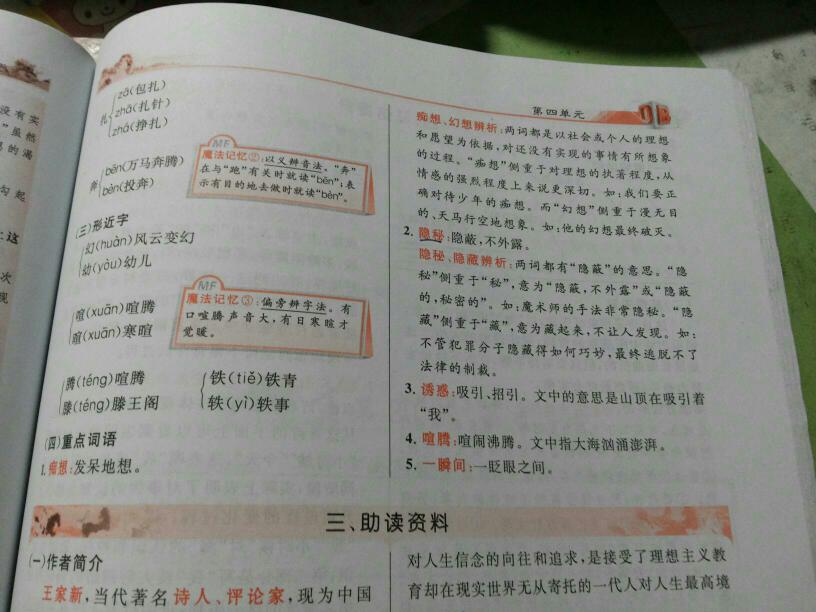 第四单元
没有实
"虽然
易的渴
勾起
上这
次
现
扎
zā(包扎)
zhā(扎针)
zhá(挣扎)
奔
bēn(万马奔腾)
bèn(投奔)
MF
魔法记忆②:以义辨音法。"奔"
在与"跑"有关时就读"bēn";表
示有目的地去做时就读"bèn"。
(三)形近字
幻(huàn)风云变幻
幼(yòu)幼儿
喧(xuān)喧腾
暄(xuān)寒暄
MF
魔法记忆③:偏旁辨字法。有
口喧腾声音大,有日寒暄才
觉暖。
腾(téng)喧腾
滕(téng)滕王阁
铁(tiě)铁青
轶(yì)轶事
(四)重点词语
1.痴想:发呆地想。
痴想、幻想辨析:两词都是以社会或个人的理想
和愿望为依据,对还没有实现的事情有所想象
的过程。"痴想"侧重于对理想的执著程度,从
情感的强烈程度上来说更深切。如:我们要正
确对待少年的痴想。而"幻想"侧重于漫无目
的、天马行空地想象。如:他的幻想最终破灭。
2.隐秘:隐蔽,不外露。
隐秘、隐藏辨析:两词都有"隐蔽"的意思。"隐
秘"侧重于"秘",意为"隐蔽,不外露"或"隐蔽
的,秘密的"。如:魔术师的手法非常隐秘。"隐
藏"侧重于"藏",意为藏起来,不让人发现。如:
不管犯罪分子隐藏得如何巧妙,最终逃脱不了
法律的制裁。
3.诱惑:吸引、招引。文中的意思是山顶在吸引着
"我"。
4.喧腾:喧闹沸腾。文中指大海汹涌澎湃。
5.一瞬间:一眨眼之间。
三、助读资料
(一)作者简介
王家新,当代著名诗人、评论家,现为中国
对人生信念的向往和追求,是接受了理想主义教
育却在现实世界无从寄托的一代人对人生最高境